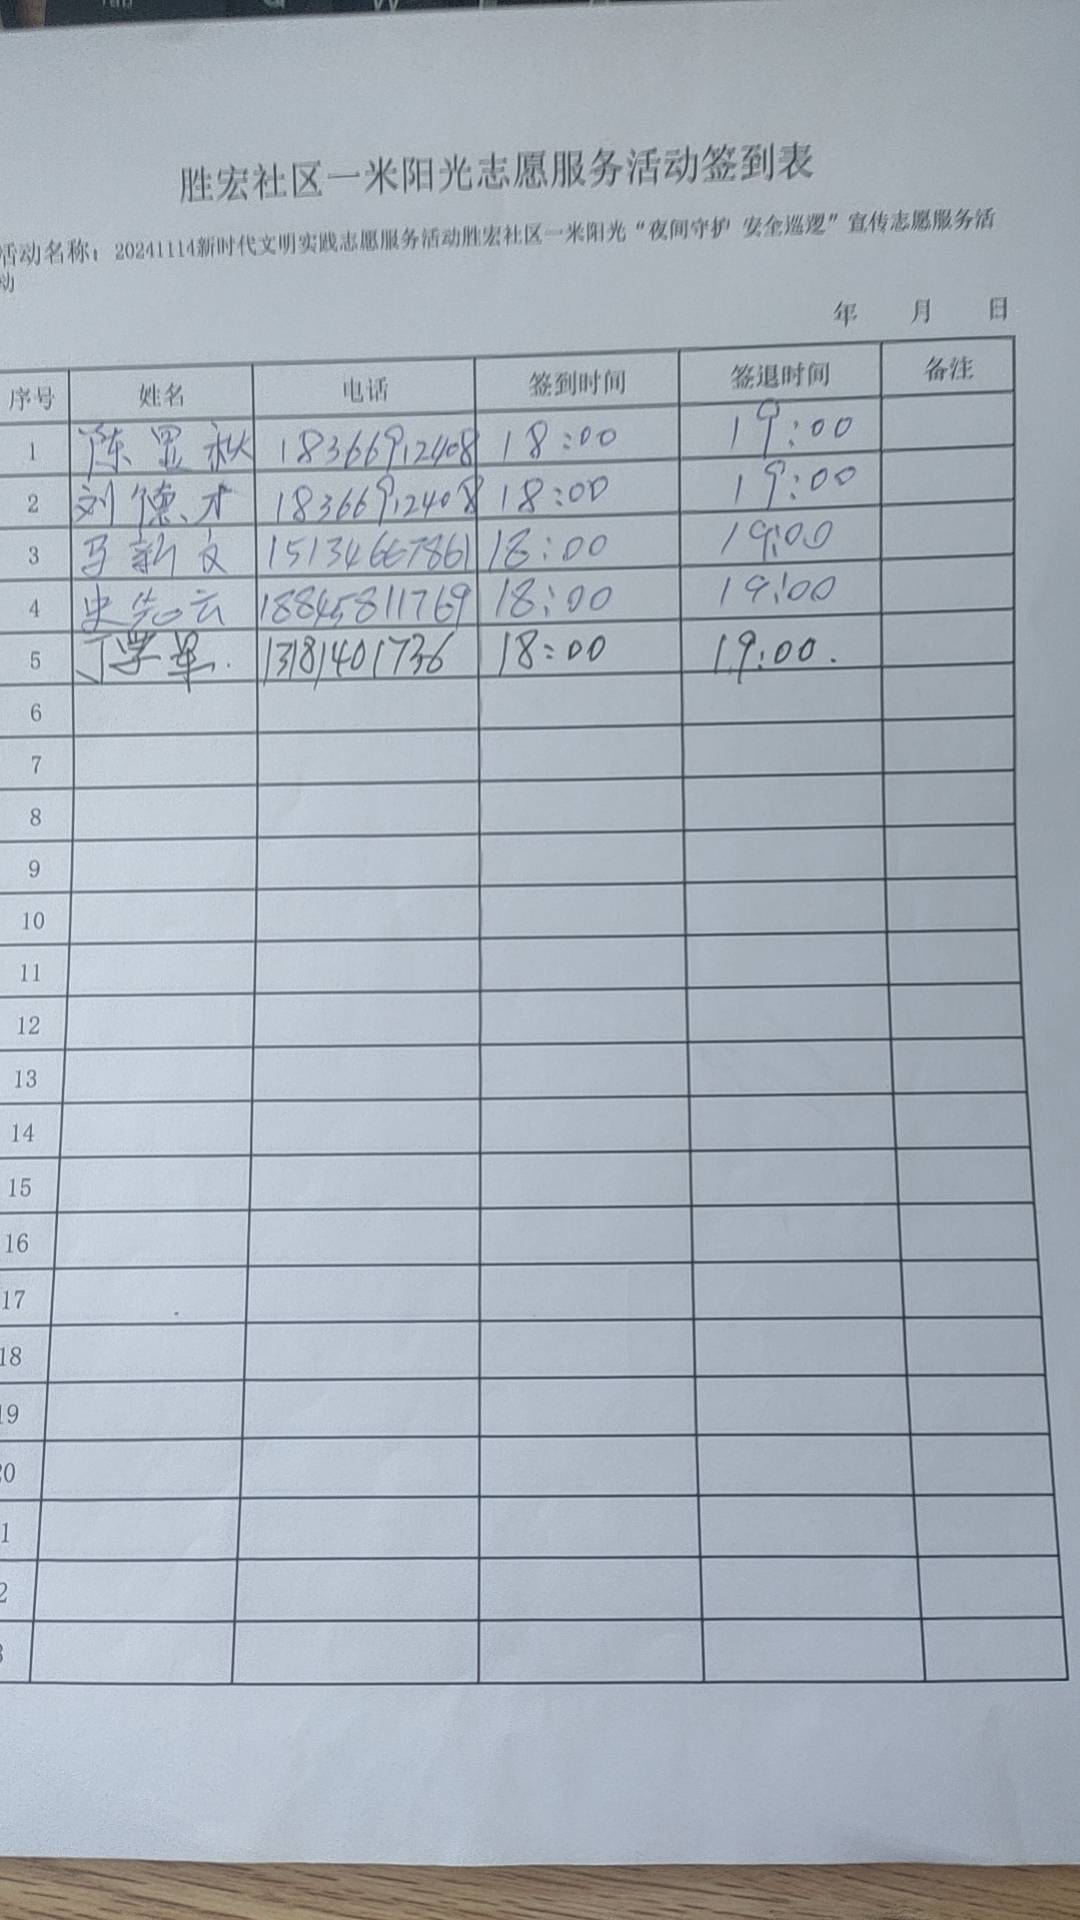 胜宏社区一米阳光志愿服务活动签到表
活动名称：20241114新时代文明实践志愿服务活动胜宏社区一米阳光“夜间守护 安全巡逻”宣传志愿服务活
动
年 月 日
序号 姓名 电话 签到时间 签退时间 备注
1 陈显秋 18366912408 18:00 19:00
2 刘德才 18366912408 18:00 19:00
3 马新文 15134667861 18:00 19:00
4 史先云 18845811769 18:00 19:00
5 丁学军. 13181401736 18:00 19:00.
6
7
8
9
10
11
12
13
14
15
16
17
18
19
20
1
2
3